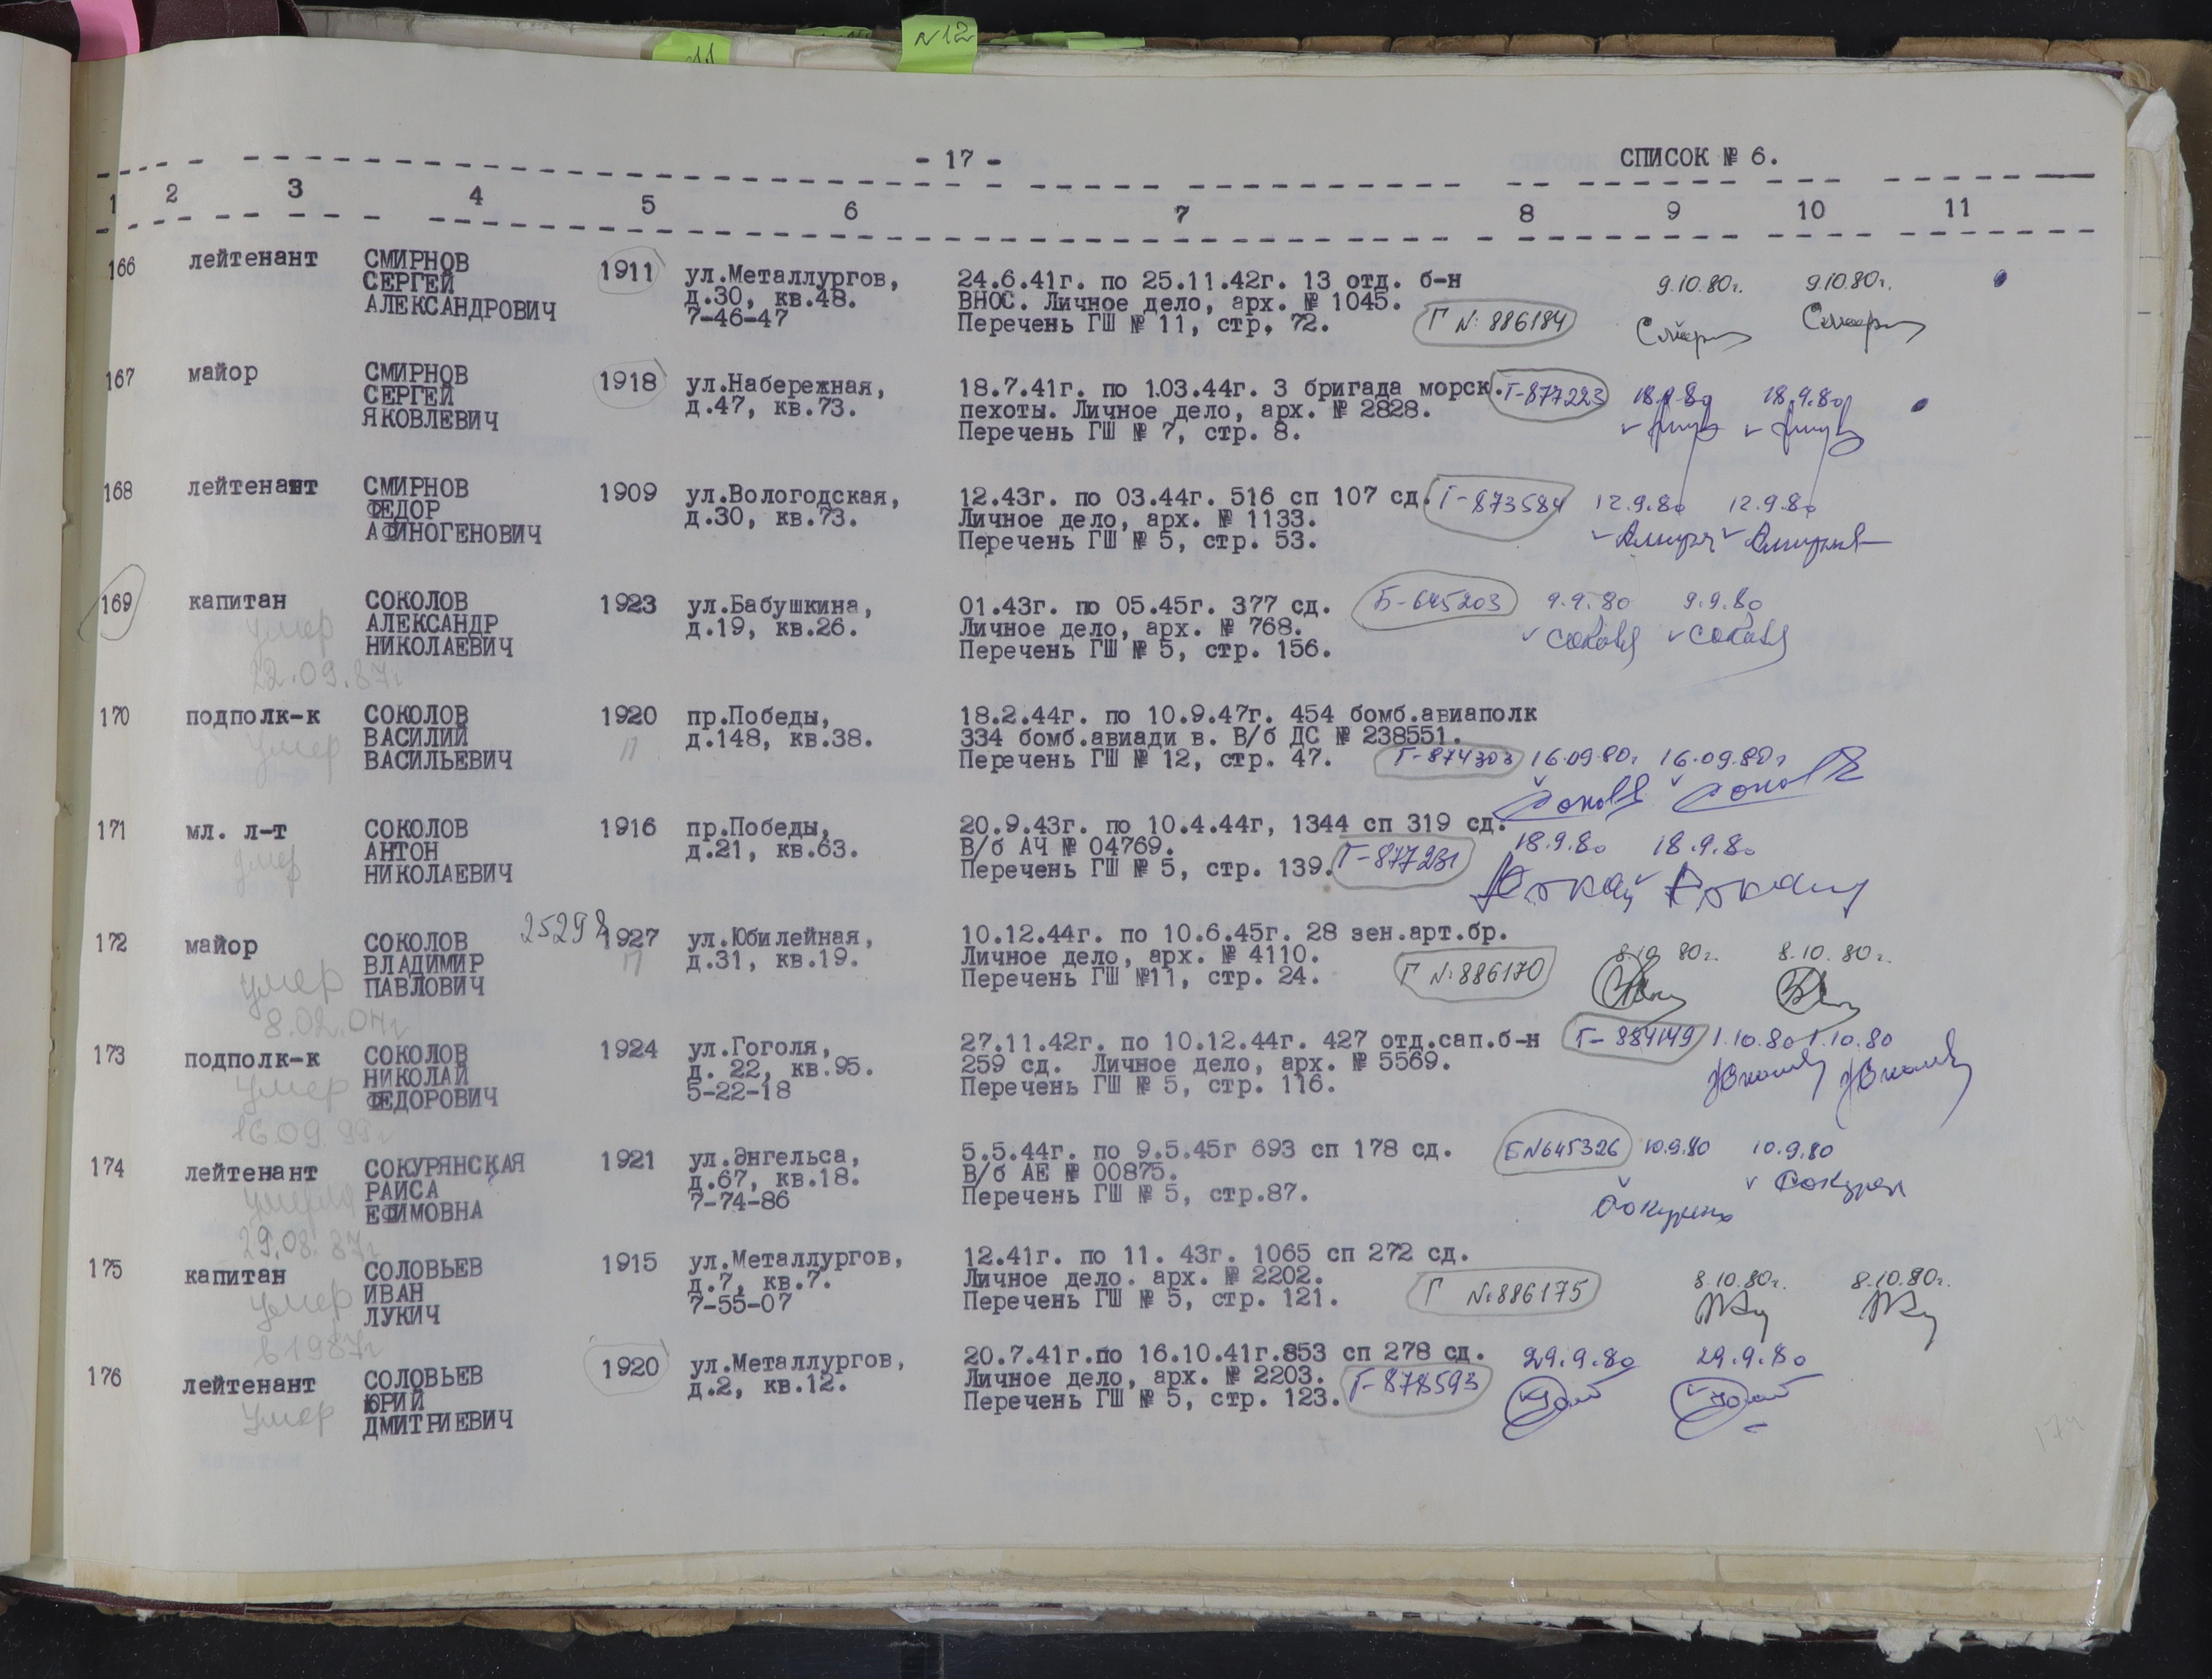 N12
11
- 17 -
СПИСОК № 6.
1 2 3 4 5 6 7 8 9 10 11
166 лейтенант СМИРНОВ 1911 ул.Металлургов, 24.6.41г. по 25.11.42г. 13 отд. б-н 9.10.80г. 9.10.80г.
СЕРГЕЙ д.30, кв.48. ВНОС. Личное дело, арх. № 1045.
АЛЕКСАНДРОВИЧ 7-46-47 Перечень ГШ № 11, стр, 72. Г №: 886184
167 майор СМИРНОВ 1918 ул.Набережная, 18.7.41г. по 1.03.44г. 3 бригада морск. Г-877223 18.9.80 18.9.80
СЕРГЕЙ д.47, кв.73. пехоты. Личное дело, арх. № 2828.
ЯКОВЛЕВИЧ Перечень ГШ № 7, стр. 8.
168 лейтенант СМИРНОВ 1909 ул.Вологодская, 12.43г. по 03.44г. 516 сп 107 сд. Г-873584 12.9.80 12.9.80
ФЕДОР д.30, кв.73. Личное дело, арх. № 1133.
АФИНОГЕНОВИЧ Перечень ГШ № 5, стр. 53.
169 капитан СОКОЛОВ 1923 ул.Бабушкина, 01.43г. по 05.45г. 377 сд. Б-645203 9.9.80 9.9.80
умер АЛЕКСАНДР д.19, кв.26. Личное дело, арх. № 768.
НИКОЛАЕВИЧ Перечень ГШ № 5, стр. 156.
22.09.87г
170 подполк-к СОКОЛОВ 1920 пр.Победы, 18.2.44г. по 10.9.47г. 454 бомб.авиаполк
умер ВАСИЛИЙ д.148, кв.38. 334 бомб.авиади в. В/б ДС № 238551.
ВАСИЛЬЕВИЧ Перечень ГШ № 12, стр. 47. Г-874303 16.09.80г 16.09.80г
171 мл. л-т СОКОЛОВ 1916 пр.Победы, 20.9.43г. по 10.4.44г, 1344 сп 319 сд. 18.9.80 18.9.80
умер АНТОН д.21, кв.63. В/б АЧ № 04769.
НИКОЛАЕВИЧ Перечень ГШ № 5, стр. 139. Г-877231
172 майор СОКОЛОВ 1927 ул.Юбилейная, 10.12.44г. по 10.6.45г. 28 зен.арт.бр. 8.10 80г. 8.10.80г.
умер ВЛАДИМИР д.31, кв.19. Личное дело, арх. № 4110.
ПАВЛОВИЧ Перечень ГШ №11, стр. 24. Г №:886170
8.02.04г
173 подполк-к СОКОЛОВ 1924 ул.Гоголя, 27.11.42г. по 10.12.44г. 427 отд.сап.б-н Г-884149 1.10.80 1.10.80
умер НИКОЛАЙ д. 22, кв.95. 259 сд. Личное дело, арх. № 5569.
ФЕДОРОВИЧ 5-22-18 Перечень ГШ № 5, стр. 116.
16.09.99г
174 лейтенант СОКУРЯНСКАЯ 1921 ул.Энгельса, 5.5.44г. по 9.5.45г 693 сп 178 сд. БN645326 10.9.80 10.9.80
умерла РАИСА д.67, кв.18. В/б АЕ № 00875.
ЕФИМОВНА 7-74-86 Перечень ГШ № 5, стр.87.
29.08.87г
175 капитан СОЛОВЬЕВ 1915 ул.Металлургов, 12.41г. по 11. 43г. 1065 сп 272 сд. 8.10.80г. 8.10.80г.
умер ИВАН д.7, кв.7. Личное дело. арх. № 2202.
ЛУКИЧ 7-55-07 Перечень ГШ № 5, стр. 121. Г №:886175
в 1987г
176 лейтенант СОЛОВЬЕВ 1920 ул.Металлургов, 20.7.41г.по 16.10.41г.853 сп 278 сд. 29.9.80 29.9.80
Умер ЮРИЙ д.2, кв.12. Личное дело, арх. № 2203. Г-878593
ДМИТРИЕВИЧ Перечень ГШ № 5, стр. 123.